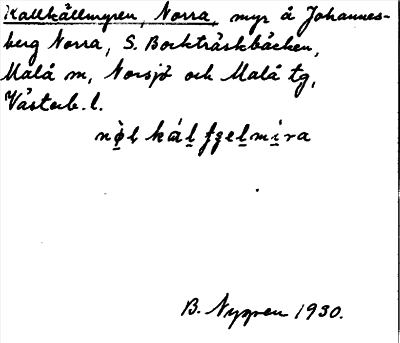 Kallkällmyren, Norra, myr å Johannes-
berg Norra, S. Bockträskbäcken,
Malå sn, Norsjö och Malå tg,
Västerb. l.
B. Nygren 1930.